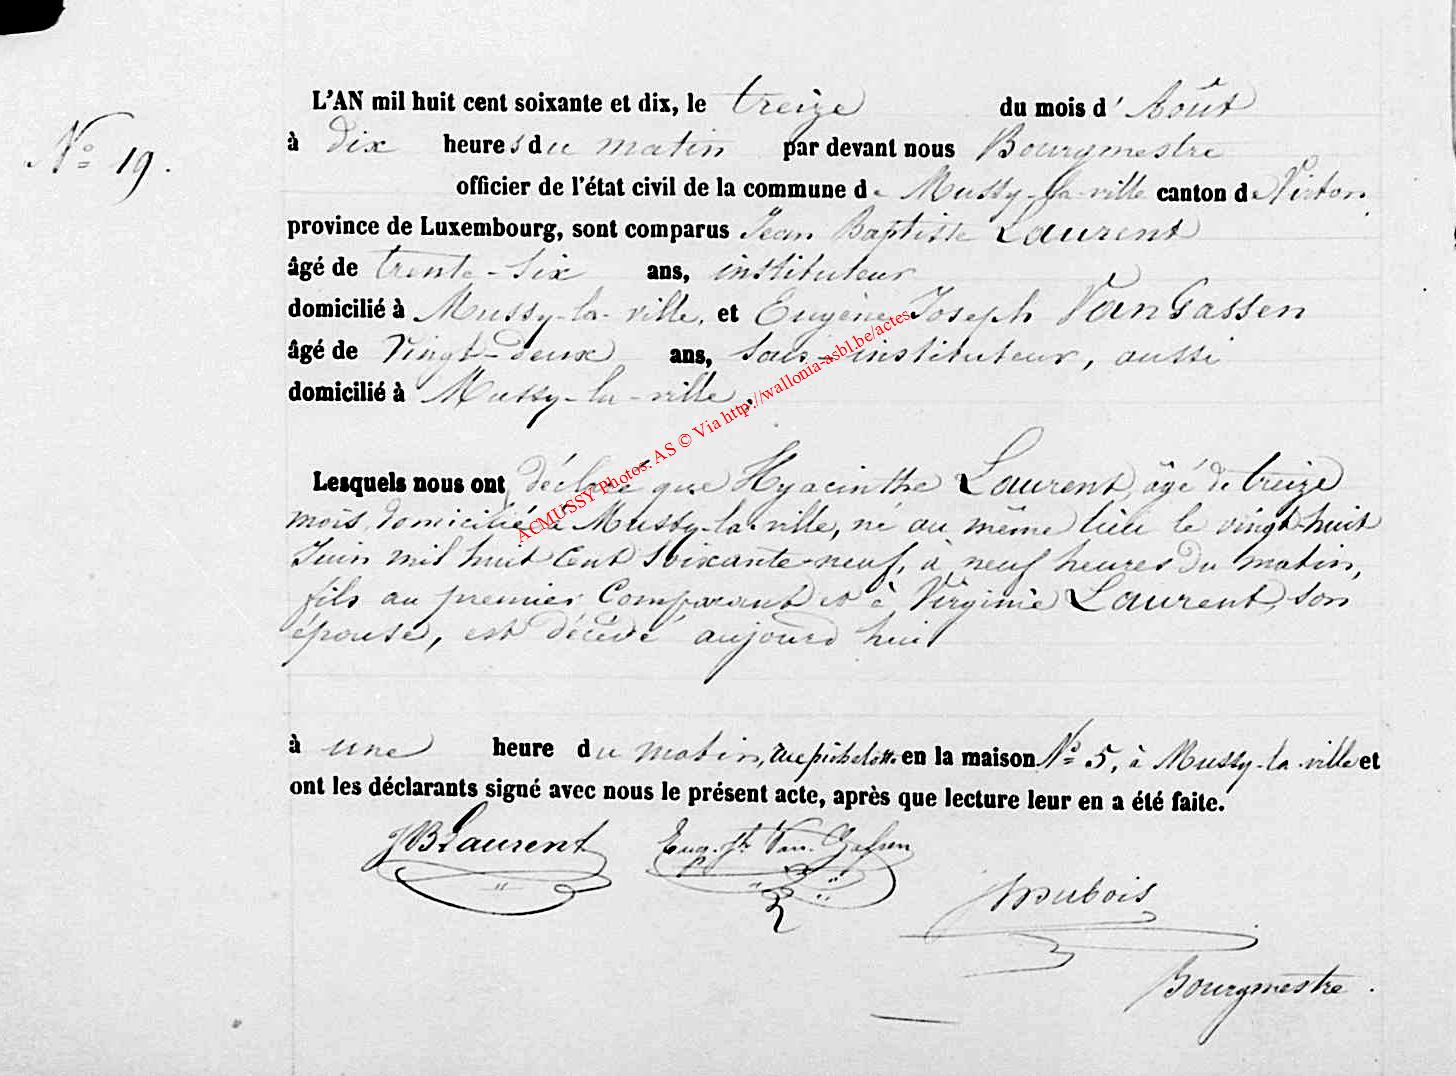 L'AN mil huit cent soixante et dix, le treize du mois d' Août
N° 19. à dix heures du matin par devant nous Bourgmestre
officier de l'état civil de la commune de Mussy-la-ville canton de Virton
province de Luxembourg, sont comparus Jean Baptiste Laurent
âgé de trente-six ans, instituteur
domicilié à Mussy-la-ville, et Eugène Joseph Van Gassen
âgé de vingt-deux ans, sous-instituteur, aussi
domicilié à Mussy-la-ville.
ACMUSSY Photos: AS © Via http://wallonia-asbl.be/actes
Lesquels nous ont déclaré que Hyacinthe Laurent, âgé de treize
mois, domicilié à Mussy-la-ville, né au même lieu le vingt-huit
Juin mil huit cent soixante-neuf, à neuf heures du matin,
fils au premier Comparant et à Virginie Laurent, son
épouse, est décédé aujourd hui
à une heure du matin, rue en la maison N° 5, à Mussy-la-ville et
ont les déclarants signé avec nous le présent acte, après que lecture leur en a été faite.
JBLaurent Eug. Jh. Van Gassen
Dubois
Bourgmestre.